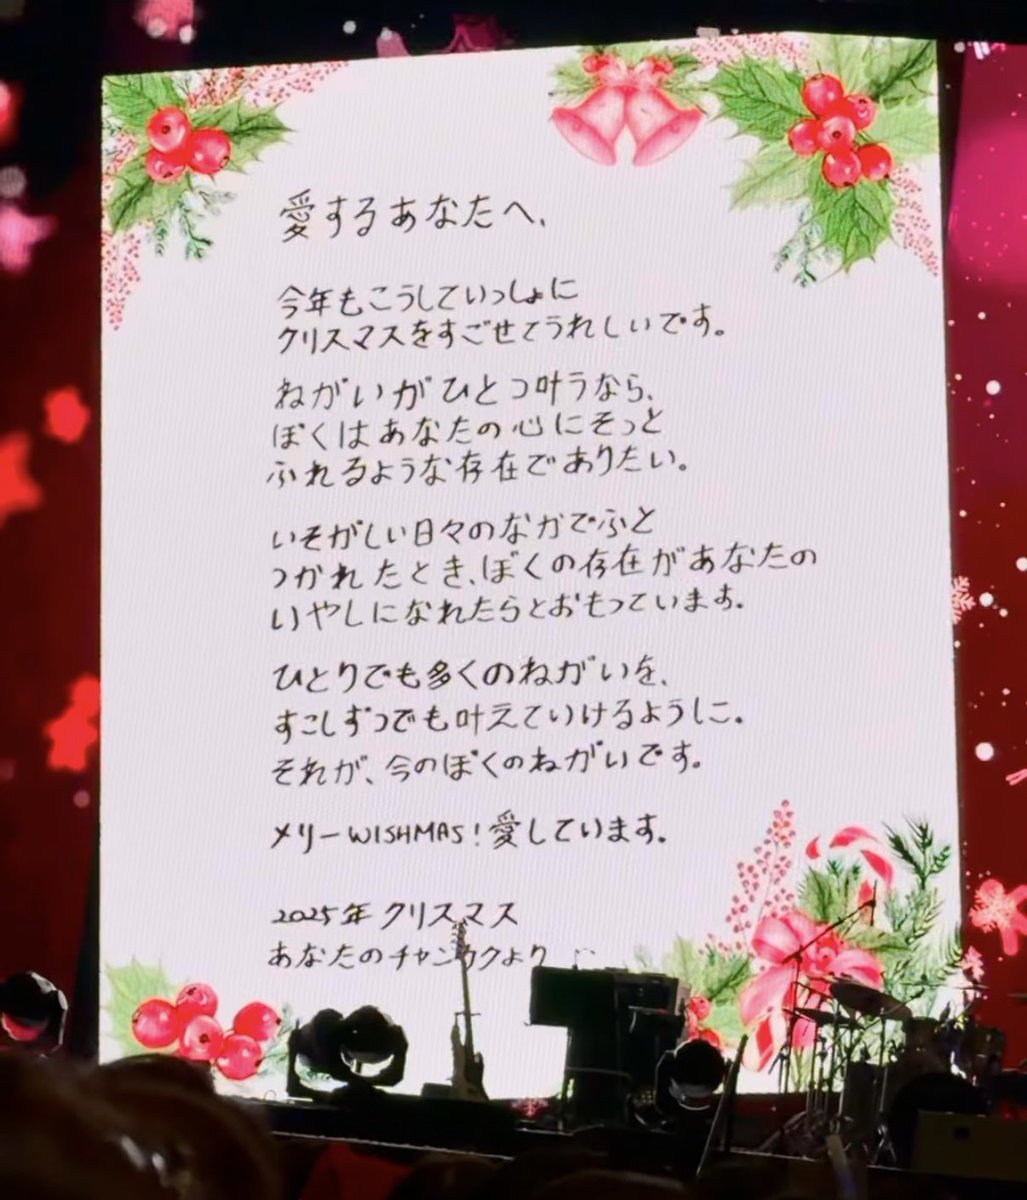 愛するあなたへ、
今年もこうしていっしょに
クリスマスをすごせてうれしいです。
ねがいがひとつ叶うなら、
ぼくはあなたの心にそっと
ふれるような存在でありたい。
いそがしい日々のなかでふと
つかれたとき、ぼくの存在があなたの
いやしになれたらとおもっています。
ひとりでも多くのねがいを、
すこしずつでも叶えていけるように。
それが、今のぼくのねがいです。
メリーWISHMAS!愛しています。
2025年クリスマス
あなたのチャンウクより